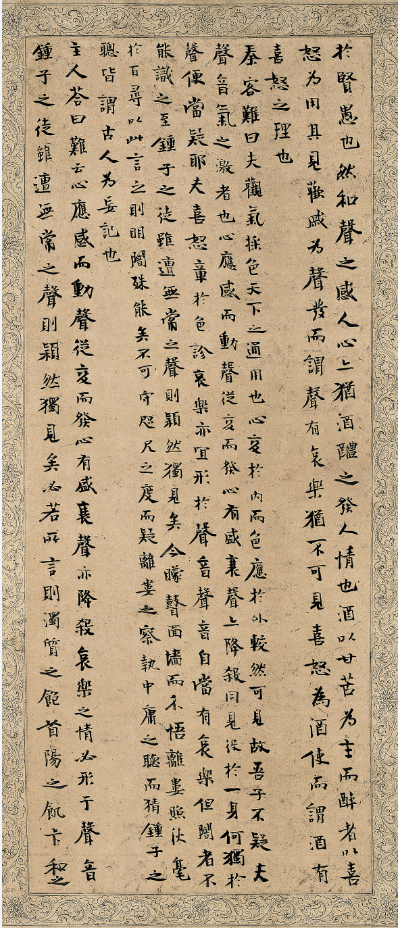 於賢愚也然和聲之感人心亦猶酒醴之發人情也酒以甘苦為主而醉者以喜
怒為用其見歡戚為聲發而謂聲有哀樂猶不可見喜怒為酒使而謂酒有
喜怒之理也
秦客難曰夫觀氣採色天下之通用也心變於內而色應於外較然可見故吾子不疑夫
聲音氣之激者也心應感而動聲從變而發心有盛衰聲亦降殺同見役於一身何獨於
聲便當疑耶夫喜怒章於色診哀樂亦宜形於聲音聲音自當有哀樂但闇者不
能識之至鍾子之徒雖遭無常之聲則穎然獨見矣今矇瞽面墻而不悟離婁照秋毫
於百尋以此言之則明闇殊能矣不可守咫尺之度而疑離婁之察執中庸之聽而猜鍾子之
聰皆謂古人為妄記也
主人荅曰難云心應感而動聲從變而發心有盛衰聲亦降殺哀樂之情必形于聲音
鍾子之徒雖遭無常之聲則穎然獨見矣必若所言則濁質之飽首陽之飢卞和之